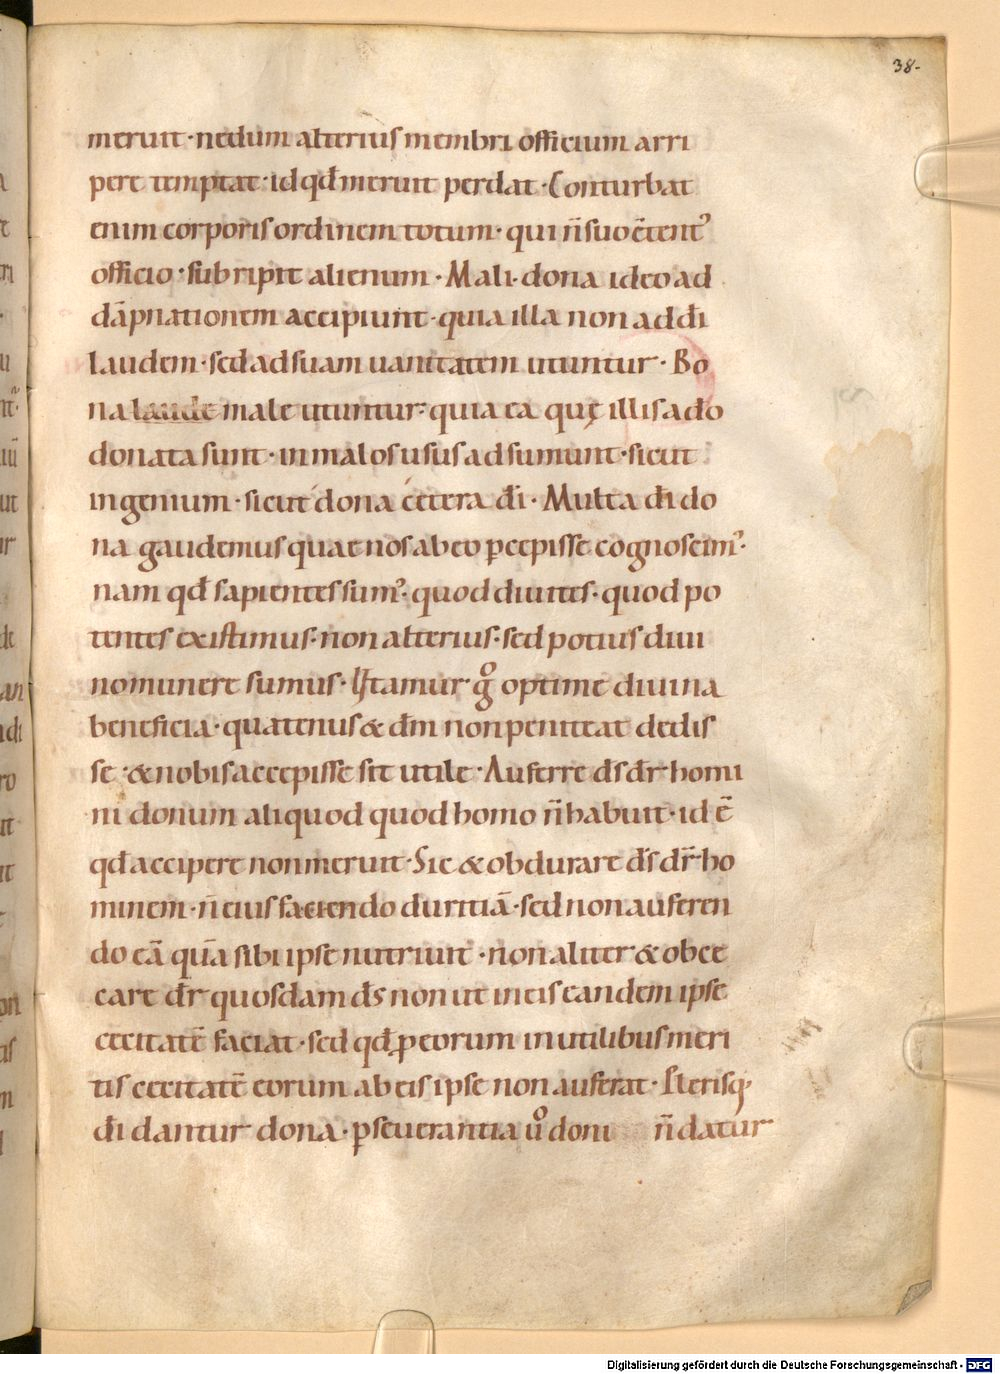 38-
meruit · nedum alterius membri officium arri
pere temptat · id qđ meruit perdat · Conturbat
enim corporis ordinem totum · qui n̄ suo c̄tent᾿
officio · subripit alienum · Mali · dona ideo ad
dāpnationem accipiunt · quia illa non ad đi
laudem · sed ad suam uanitatem utuntur · Bo
na laude male utuntur · quia ea quę illis a dō
donata sunt · in malos usus adsumunt · sicut
ingenium · sicut dona cetera đi · Multa đi do
na gaudemus quae nos ab eo ꝑcepisse cognoscim᾿ ·
nam qđ sapientes sum᾿ · quod diuites · quod po
tentes existimus · non alterius · sed potius diui
no munere sumus · Utamur gͦ optime diuina
beneficia · quatenus & dm̄ non peniteat dedis
se · & nobis accepisse sit utile · Auferre ds̄ dr̄ homi
ni donum aliquod quod homo n̄ habuit · id ē
qđ accipere non meruit · Sic & obdurare ds̄ dr̄ ho
minem · n̄ eius faciendo duritiā · sed non auferen
do eā quā sibi ipse nutriuit · non aliter & obce
care dr̄ quosdam ds̄ non ut in eis eandem ipse
cecitatē faciat · sed qđ ꝓ eorum inutilibus meri
tis cecitatē eorum ab eis ipse non auferat · Plerisq;
đi dantur dona · ꝑseuerantia uͦ doni n̄ datur
Digitalisierung gefördert durch die Deutsche Forschungsgemeinschaft - DFG